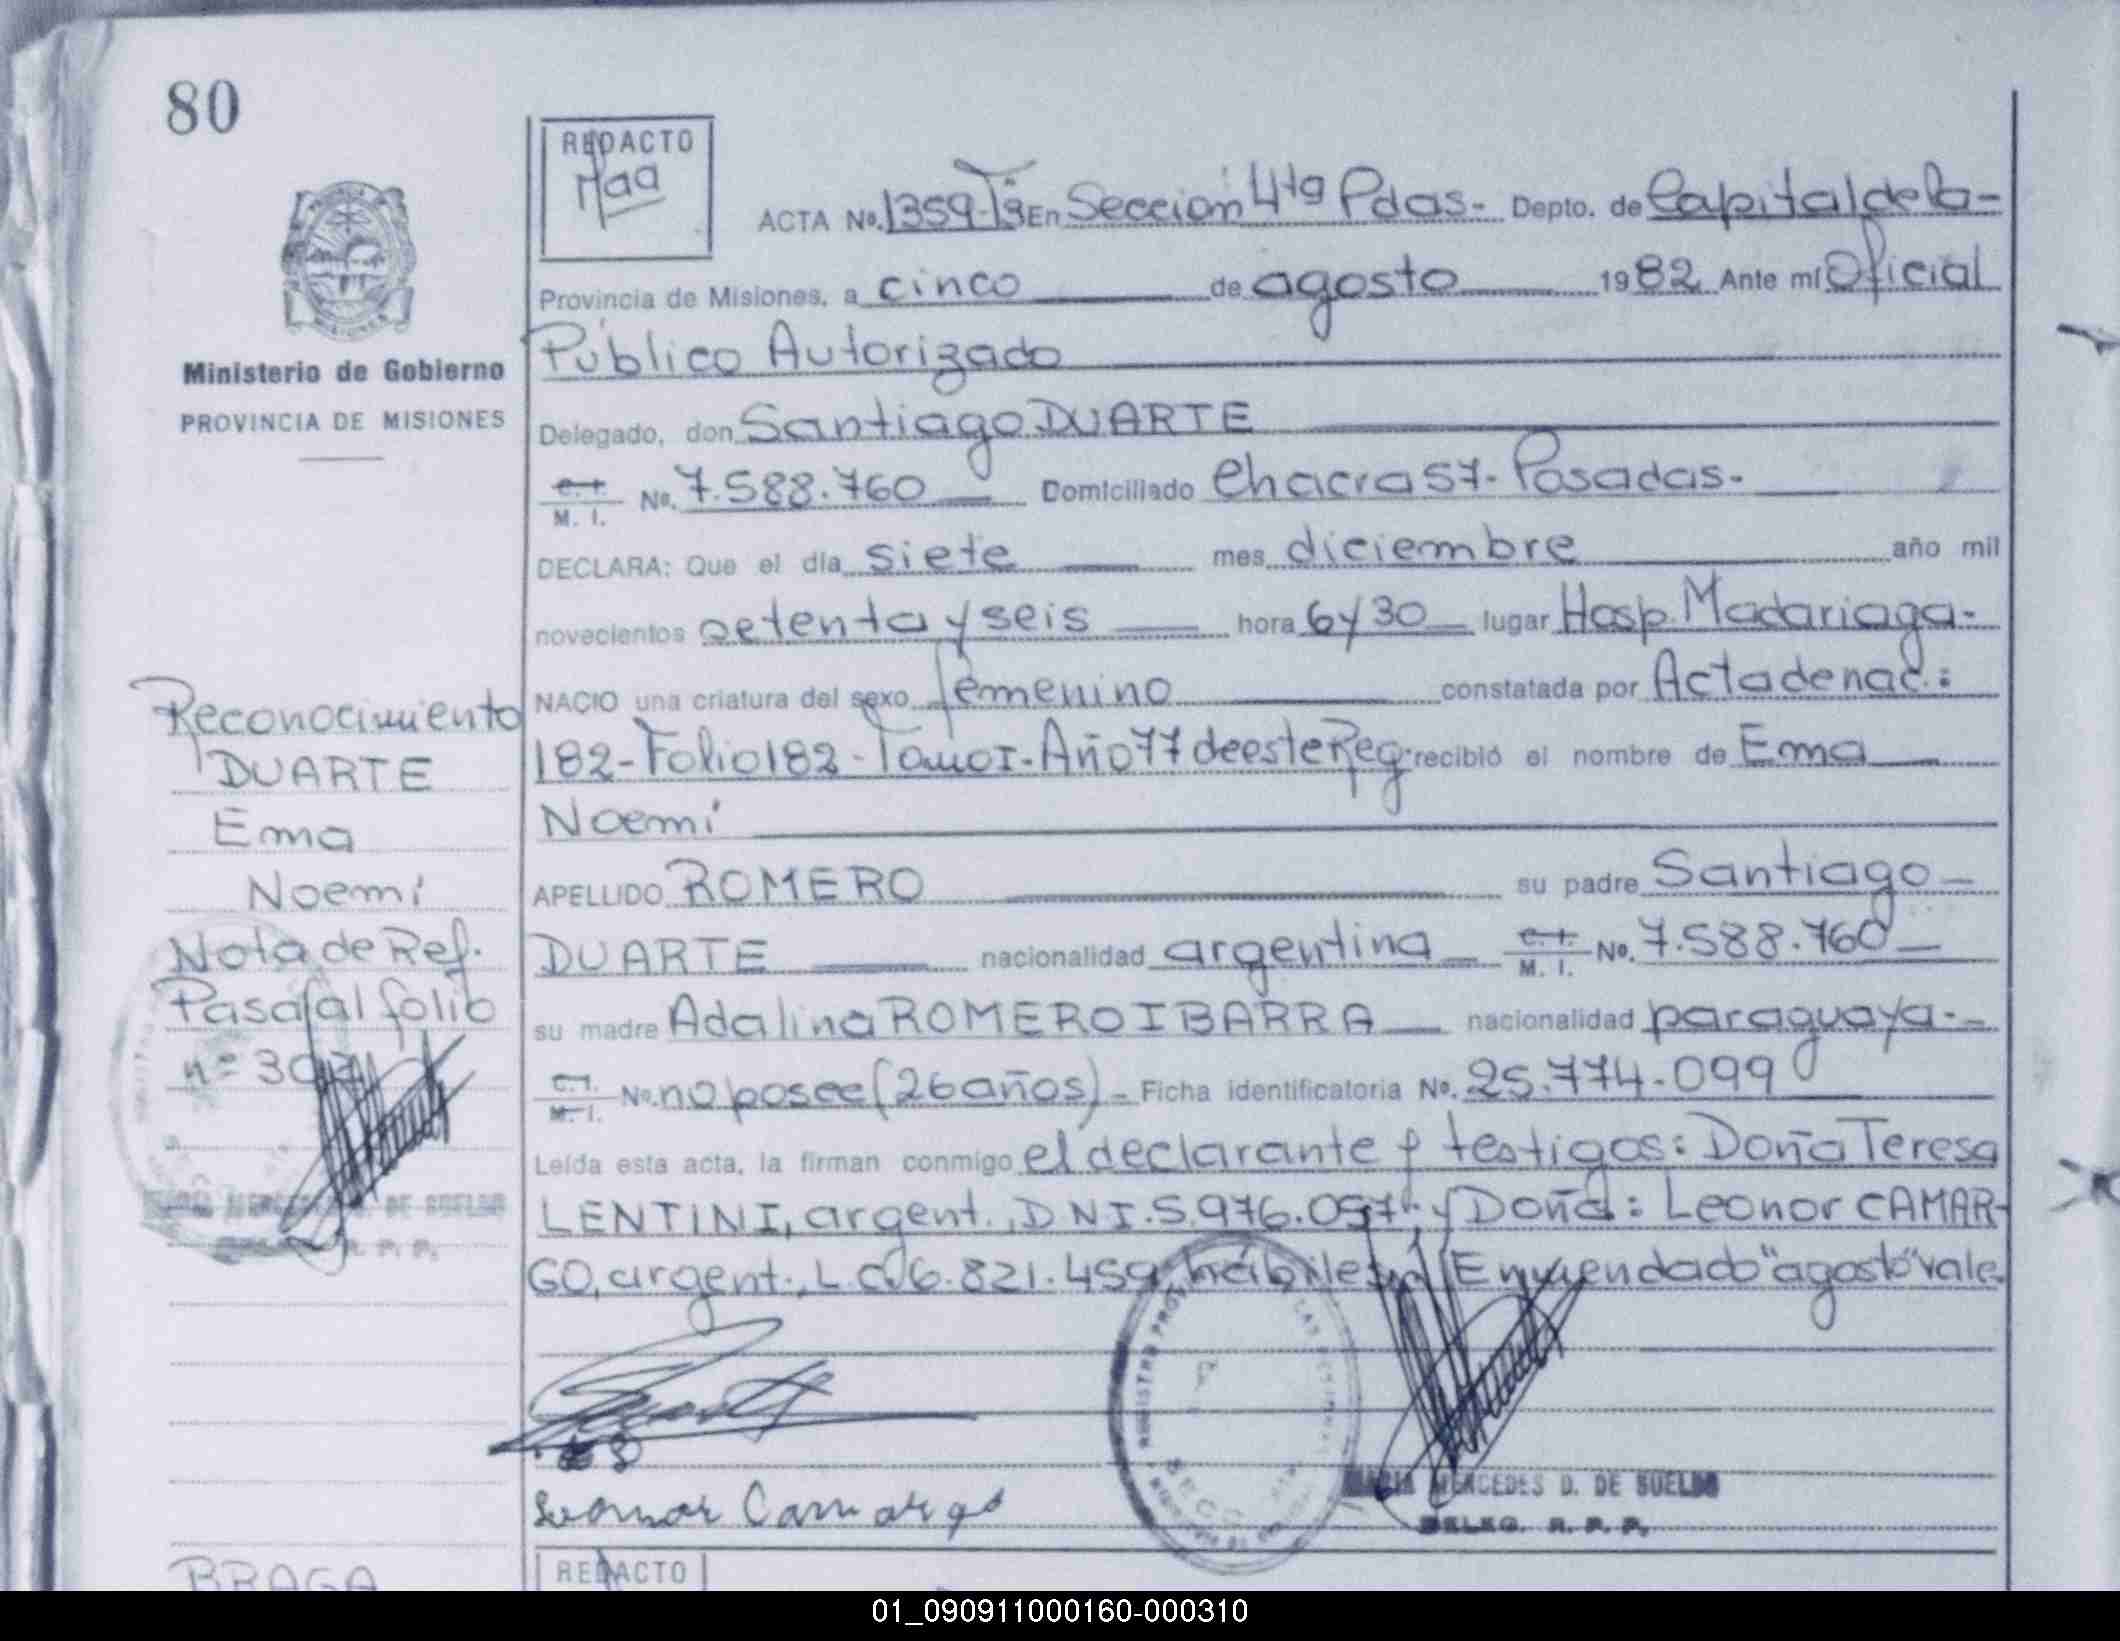 80
REDACTO
ACTA Nº. 1359-Tº En Sección 4ta Pdas- Depto. de Capital de la-
Provincia de Misiones, a cinco de agosto 1982 Ante mí Oficial
Público Autorizado
Ministerio de Gobierno
PROVINCIA DE MISIONES
Delegado, don Santiago DUARTE
C. I. M. I. No. 7.588.760 Domiciliado Chacra 57- Posadas-
DECLARA: Que el día siete mes diciembre año mil
novecientos setenta y seis hora 6 y 30 lugar Hosp. Madariaga-
NACIO una criatura del sexo femenino constatada por Acta de nac:
182-Folio 182-Tomo I-Año 77 de este Reg. recibió el nombre de Ema
Noemí
APELLIDO ROMERO su padre Santiago
DUARTE nacionalidad argentina C. I. M. I. No. 7.588.760
su madre Adalina ROMERO IBARRA nacionalidad paraguaya-
C. I. M. I. No. no posee (26 años)- Ficha identificatoria No. 25.774.099
Leída esta acta, la firman conmigo el declarante y testigos: Doña Teresa
LENTINI, argent., DNI. 5.976.057 y Doña: Leonor CAMAR-
GO, argent., L.C. 6.821.459, hábiles Enmendado "agosto" vale.
Reconocimiento
DUARTE
Ema
Noemí
Nota de Ref.
Pasa al folio
nº
DE SUELDO
R. P. P.
REGISTRO PROV
LAS PERSONAS
SECC
Leonor Camargo
MARIA MERCEDES D. DE SUELDO
DELEG. R. P. P.
BRAGA
REDACTO
01_090911000160-000310